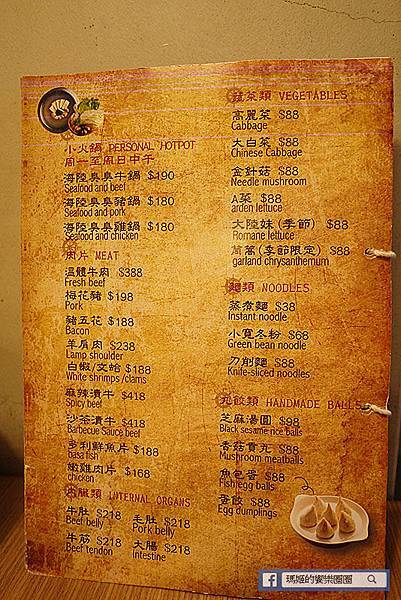 小火鍋 PERSONAL HOTPOT
周一至周日中午
海陸臭臭牛鍋 $190
Seafood and beef
海陸臭臭豬鍋 $180
Seafood and pork
海陸臭臭雞鍋 $180
Seafood and chicken
肉片 MEAT
溫體牛肉 $388
Fresh beef
梅花豬 $198
Pork
豬五花 $188
Bacon
羊肩肉 $238
Lamp shoulder
白蝦/文蛤 $188
White shrimps /clams
麻辣漬牛 $418
Spicy beef
沙茶漬牛 $418
Barbecue Sauce beef
多利鮮魚片 $188
basa fish
嫩雞肉片 $168
chicken
內臟類 INTERNAL ORGANS
牛肚 $218 毛肚 $218
Beef belly Pork belly
牛筋 $218 大腸 $218
Beef tendon Intestine
蔬菜類 VEGETABLES
高麗菜 $88
Cabbage
大白菜 $88
Chinese Cabbage
金針菇 $88
Needle mushroom
A菜 $88
arden lettuce
大陸妹(季節) $88
Romane lettuce
茼萵(季節限定) $88
garland chrysanthemum
麵類 NOODLES
蒸煮麵 $38
Instant noodle
小寬冬粉 $68
Green bean noodle
刀削麵 $88
Knife-sliced noodles
丸餃類 HANDMADE BALLS
芝麻湯圓 $98
Black sesame rice balls
香菇貢丸 $88
Mushroom meatballs
魚包蛋 $88
Fish egg balls
蛋餃 $88
Egg dumplings
瑪姬的饗樂圈圈